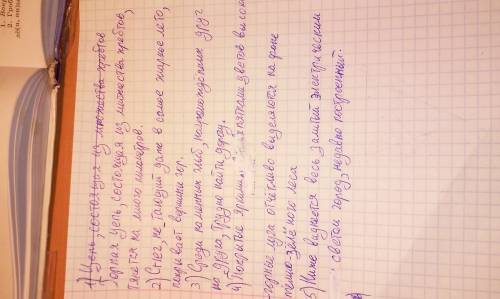 1) Цепь, состоящая из множества хребтов
горная цепь, состоящая из множества хребтов,
тянется на много километров.
2) Снег, не тающий даже в самое жаркое лето,
покрывает вершины гор.
3) Среди каменных глыб, нагромождённых друг
на друга, трудно найти дорогу.
4) Покрытые яркими пятнами цветов высоко
-горные луга отчётливо выделяются на фоне
тёмно-зелёного леса
5) Ниже виднеется весь залитый электрическим
светом город, недавно построенный.